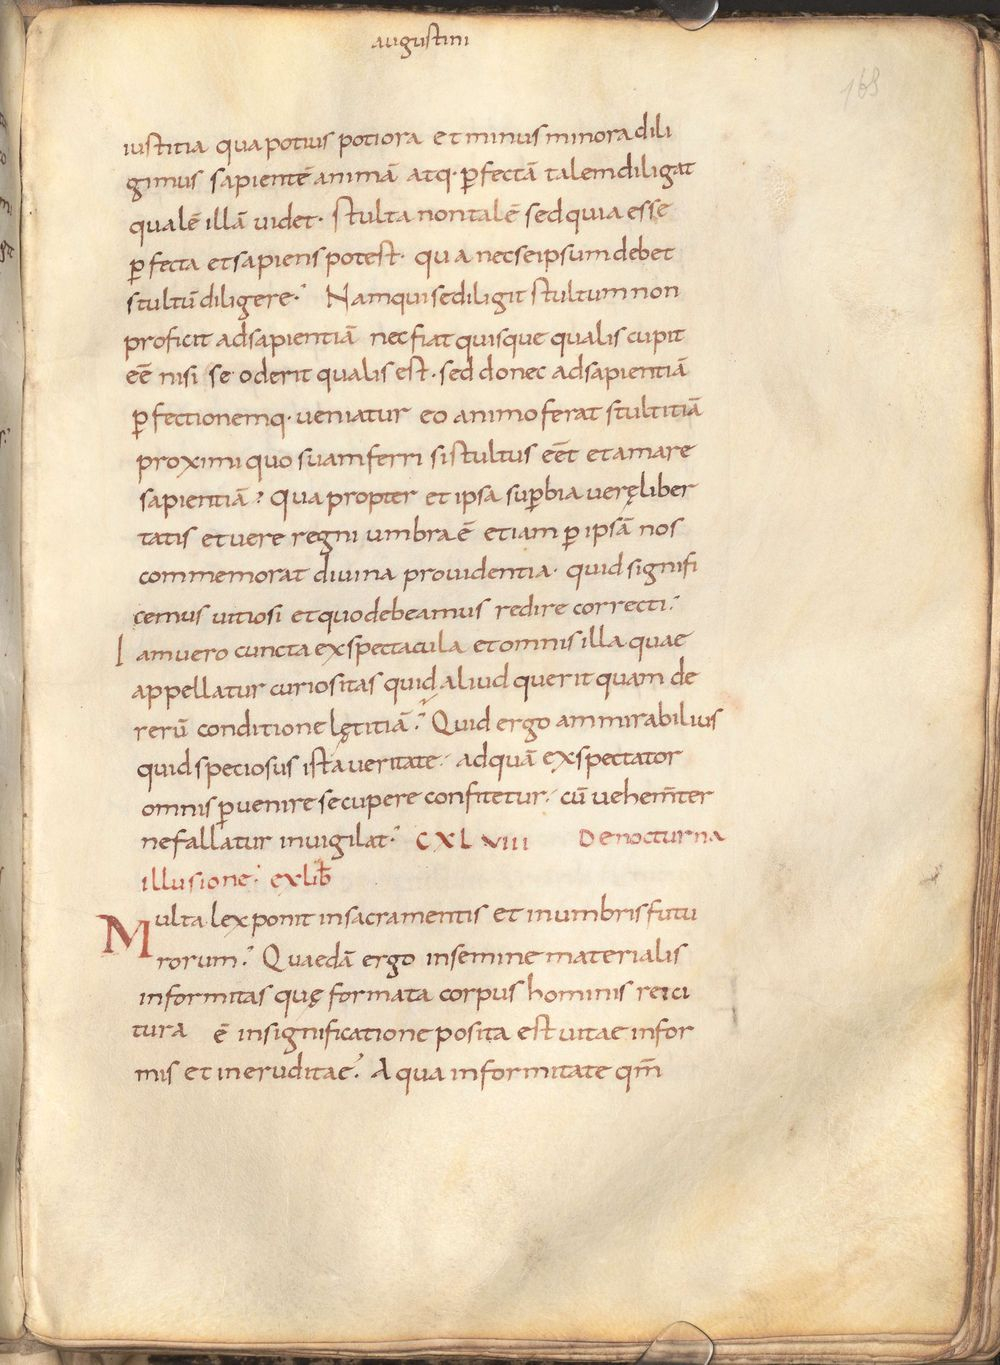 augustini
163
iustitia qua potius potiora et minus minora dili
gimus sapientē animā atq· ꝑfectā talem diligat
qualē illā uidet· stulta non talē sed quia esse
ꝑfecta et sapiens potest· qua nec se ipsum debet
stultū diligere·' Nam qui se diligit stultum non
proficit ad sapientiā nec fiat quisque qualis cupit
eē nisi se oderit qualis est· sed donec ad sapientiā
ꝑfectionemq· ueniatur eo animo ferat stultitiā
proximi quo suam ferri si stultus eēt et amare
sapientiā? Qua propter et ipsa suꝑbia uerę liber
tatis et uere regni umbra ē etiam ꝑ ipsā nos
commemorat diuina prouidentia· quid signifi
cemus uitiosi et quo debeamus redire correcti·'
Iam uero cuncta exspectacula et omnis illa quae
appellatur curiositas quid aliud querit quam de
rerū conditione lętitiā·' Quid ergo ammirabilius
quid speciosus ista ueritate· ad quā exspectator
omnis ꝑuenire se cupere confitetur· cū uehem̄ter
ne fallatur inuigilat·' CXLVIII De nocturna
illusione·' ex lib̄
Multa lex ponit in sacramentis et in umbris futu
rorum·' Quaedā ergo in semine materialis
informitas quę formata corpus hominis reici
tura ē in significatione posita est uitae infor
mis et ineruditae·' A qua informitate qm̄